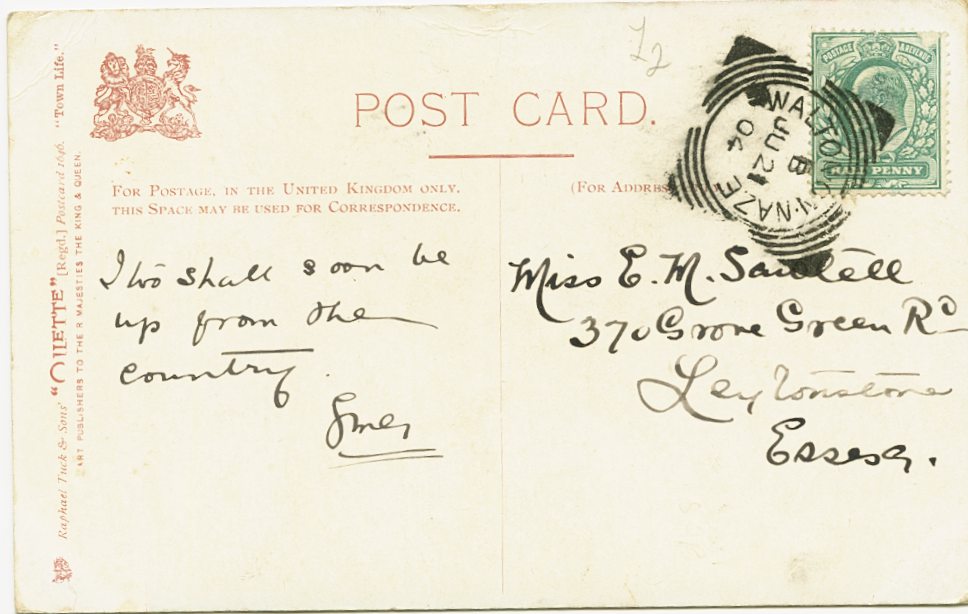 Raphael Tuck & Sons' "OILETTE" [Regd.] Postcard 1646. "Town Life."
ART PUBLISHERS TO THEIR MAJESTIES THE KING & QUEEN.
POST CARD.
£2
WALTON-ON-NAZE
B
JU 21
04
POSTAGE & REVENUE
HALF PENNY
FOR POSTAGE, IN THE UNITED KINGDOM ONLY,
THIS SPACE MAY BE USED FOR CORRESPONDENCE.
(FOR ADDRESS
I too shall soon be
up from the
country.
Miss E. M. Sawtell
370 Grove Green Rd
Leytonstone
Essex.